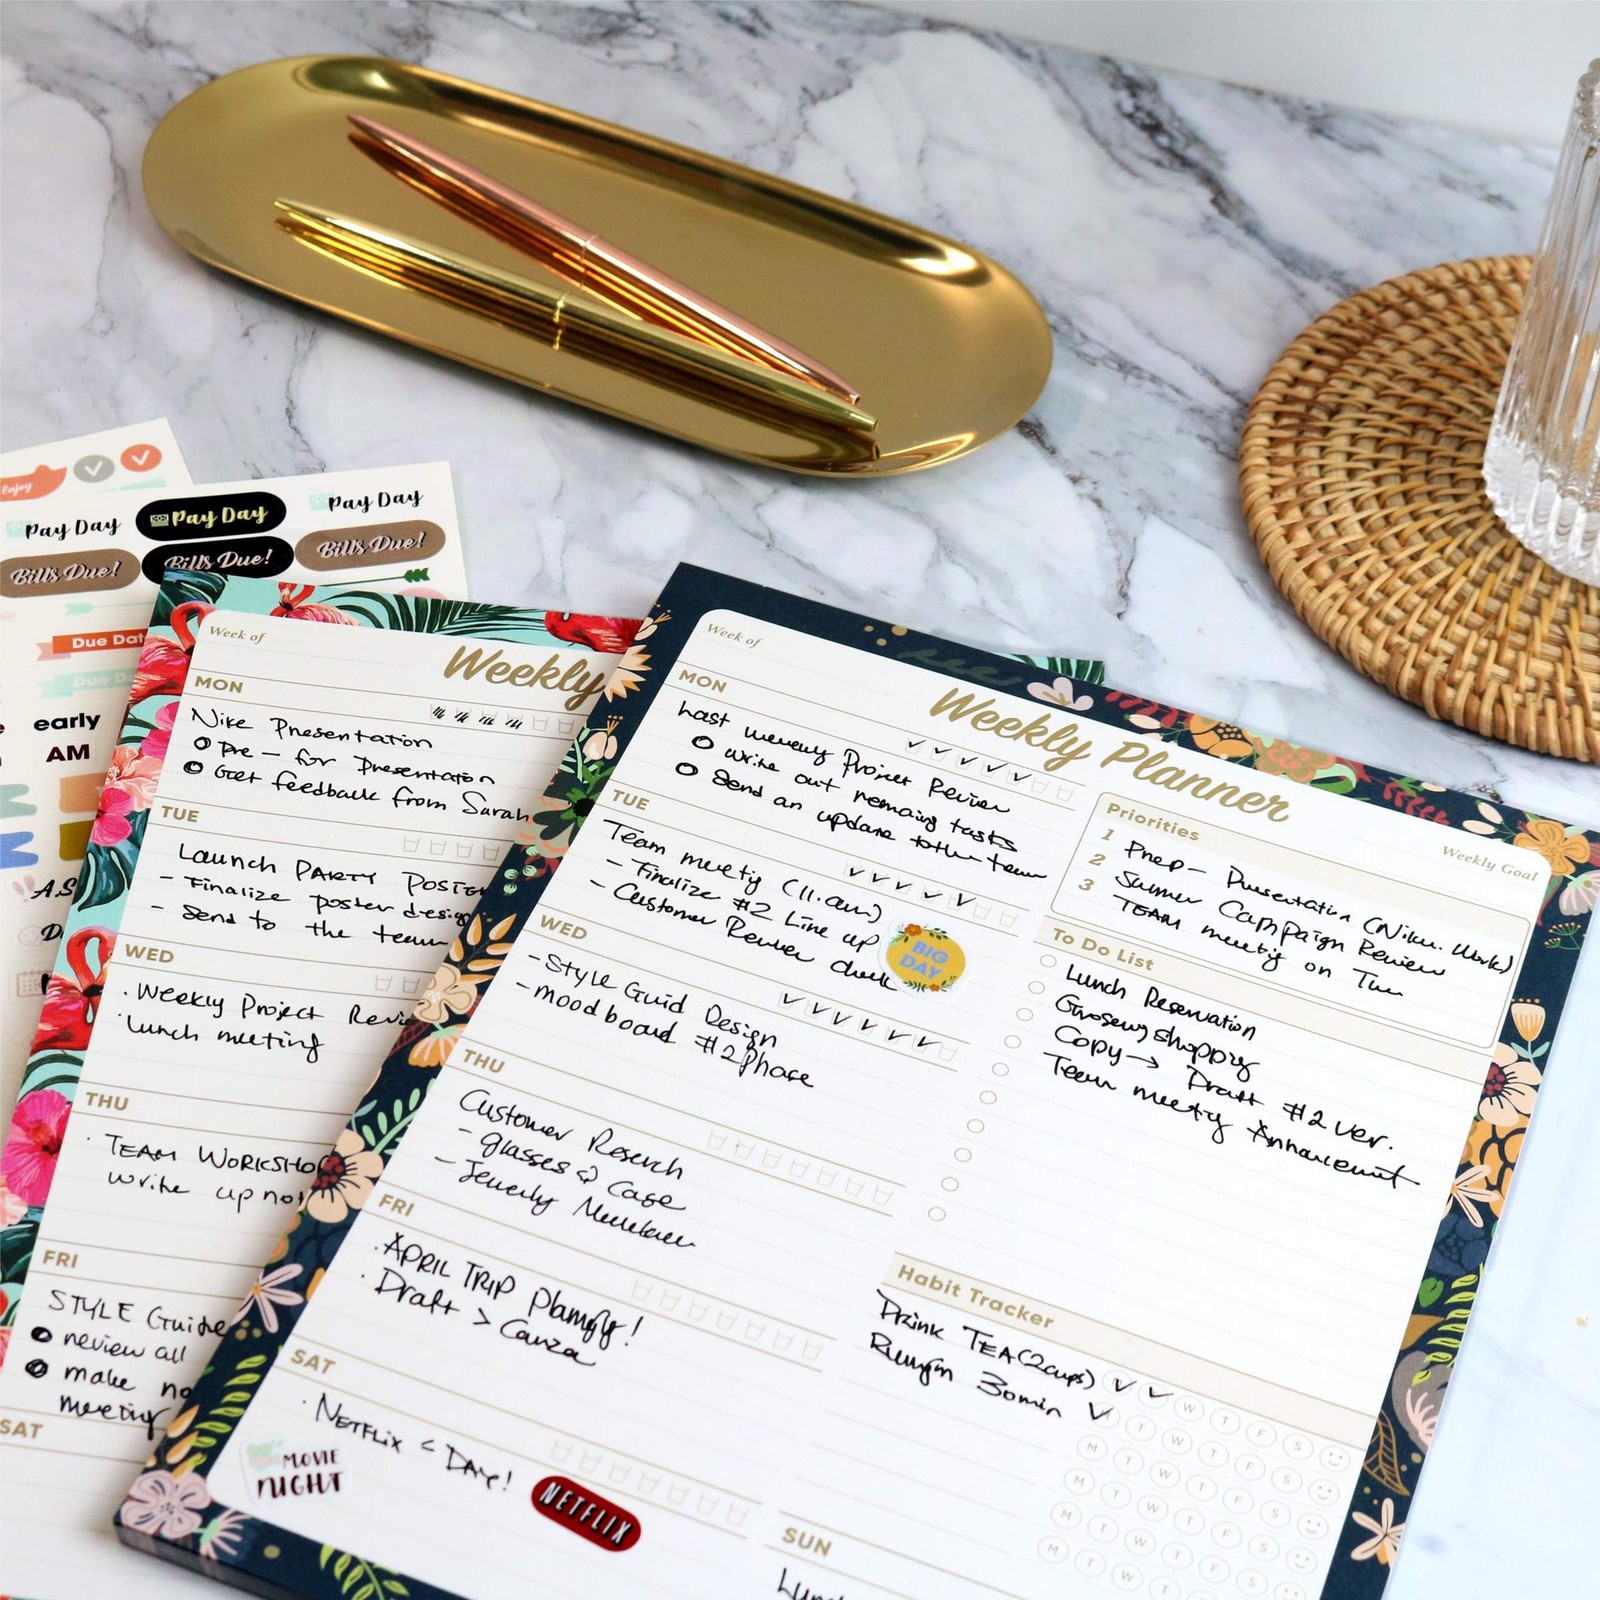 Enjoy
Pay Day
Pay Day
Pay Day
Bills Due!
Bills Due!
Bills Due!
Due Dat
Due Da
early
AM
A.S
Week of
Weekly
MON
Nike Presentation
Pre - for Presentation
Get feedback from Sarah
TUE
Launch PARTY POSTE
- Finalize poster design
- Send to the team
WED
· Weekly Project Revie
· Lunch meeting
THU
· TEAM WORKSHO
write up no
FRI
STYLE Guide
review all
make no
meeting
SAT
Week of
Weekly Planner
MON
Last Project Review
write out remaing tasks
Send an
update to the team
TUE
Team meety (11.am)
- Finalize #2 Line up
- Customer Review check
BIG
DAY
WED
- Style Guid Design
- mood board #2 Phase
THU
Customer Reserch
- glasses & Case
- Jewerly
FRI
· APRIL TRIP !
· Draft >
SAT
· NETFLIX < Day!
MOVIE
NIGHT
NETFLIX
Priorities
Weekly Goal
1 Prep - Presentation
2 Summer Campaign Review
3 TEAM meetig on Tue
To Do List
Lunch Reservation
Grosery shopping
Copy → Draft #2 ver.
Team meetig
Habit Tracker
Drink TEA (2cups) W T F S
30min T W T F S
M T W T F S
M T W T F S
M T W T F S
M T W
SUN
Lunc